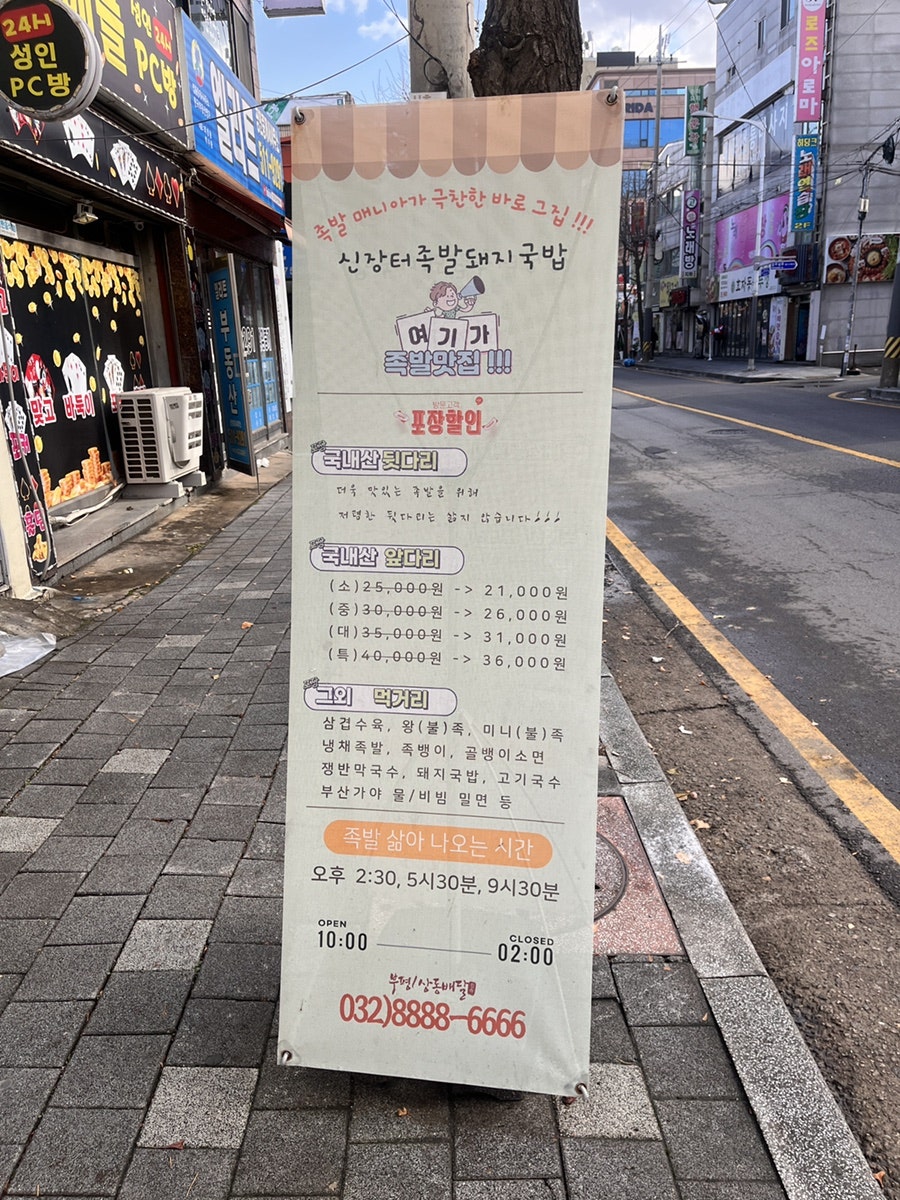 족발 매니아가 극찬한 바로 그집 !!!
신장터족발돼지국밥
여기가
족발맛집 !!!
방문고객
포장할인
국내산 뒷다리
더욱 맛있는 족발을 위해
저렴한 뒷다리는 삶지 않습니다
국내산 앞다리
(소)25,000원 -> 21,000원
(중)30,000원 -> 26,000원
(대)35,000원 -> 31,000원
(특)40,000원 -> 36,000원
그외 먹거리
삼겹수육, 왕(불)족, 미니(불)족
냉채족발, 족뱅이, 골뱅이소면
쟁반막국수, 돼지국밥, 고기국수
부산가야 물/비빔 밀면 등
족발 삶아 나오는 시간
오후 2:30, 5시30분, 9시30분
OPEN
10:00
CLOSED
02:00
부평/상동배달
032)8888-6666
24H
성인
PC방
성인 24H
PC방
부동산
맞고
바둑이
로즈아로마
노래방
2F